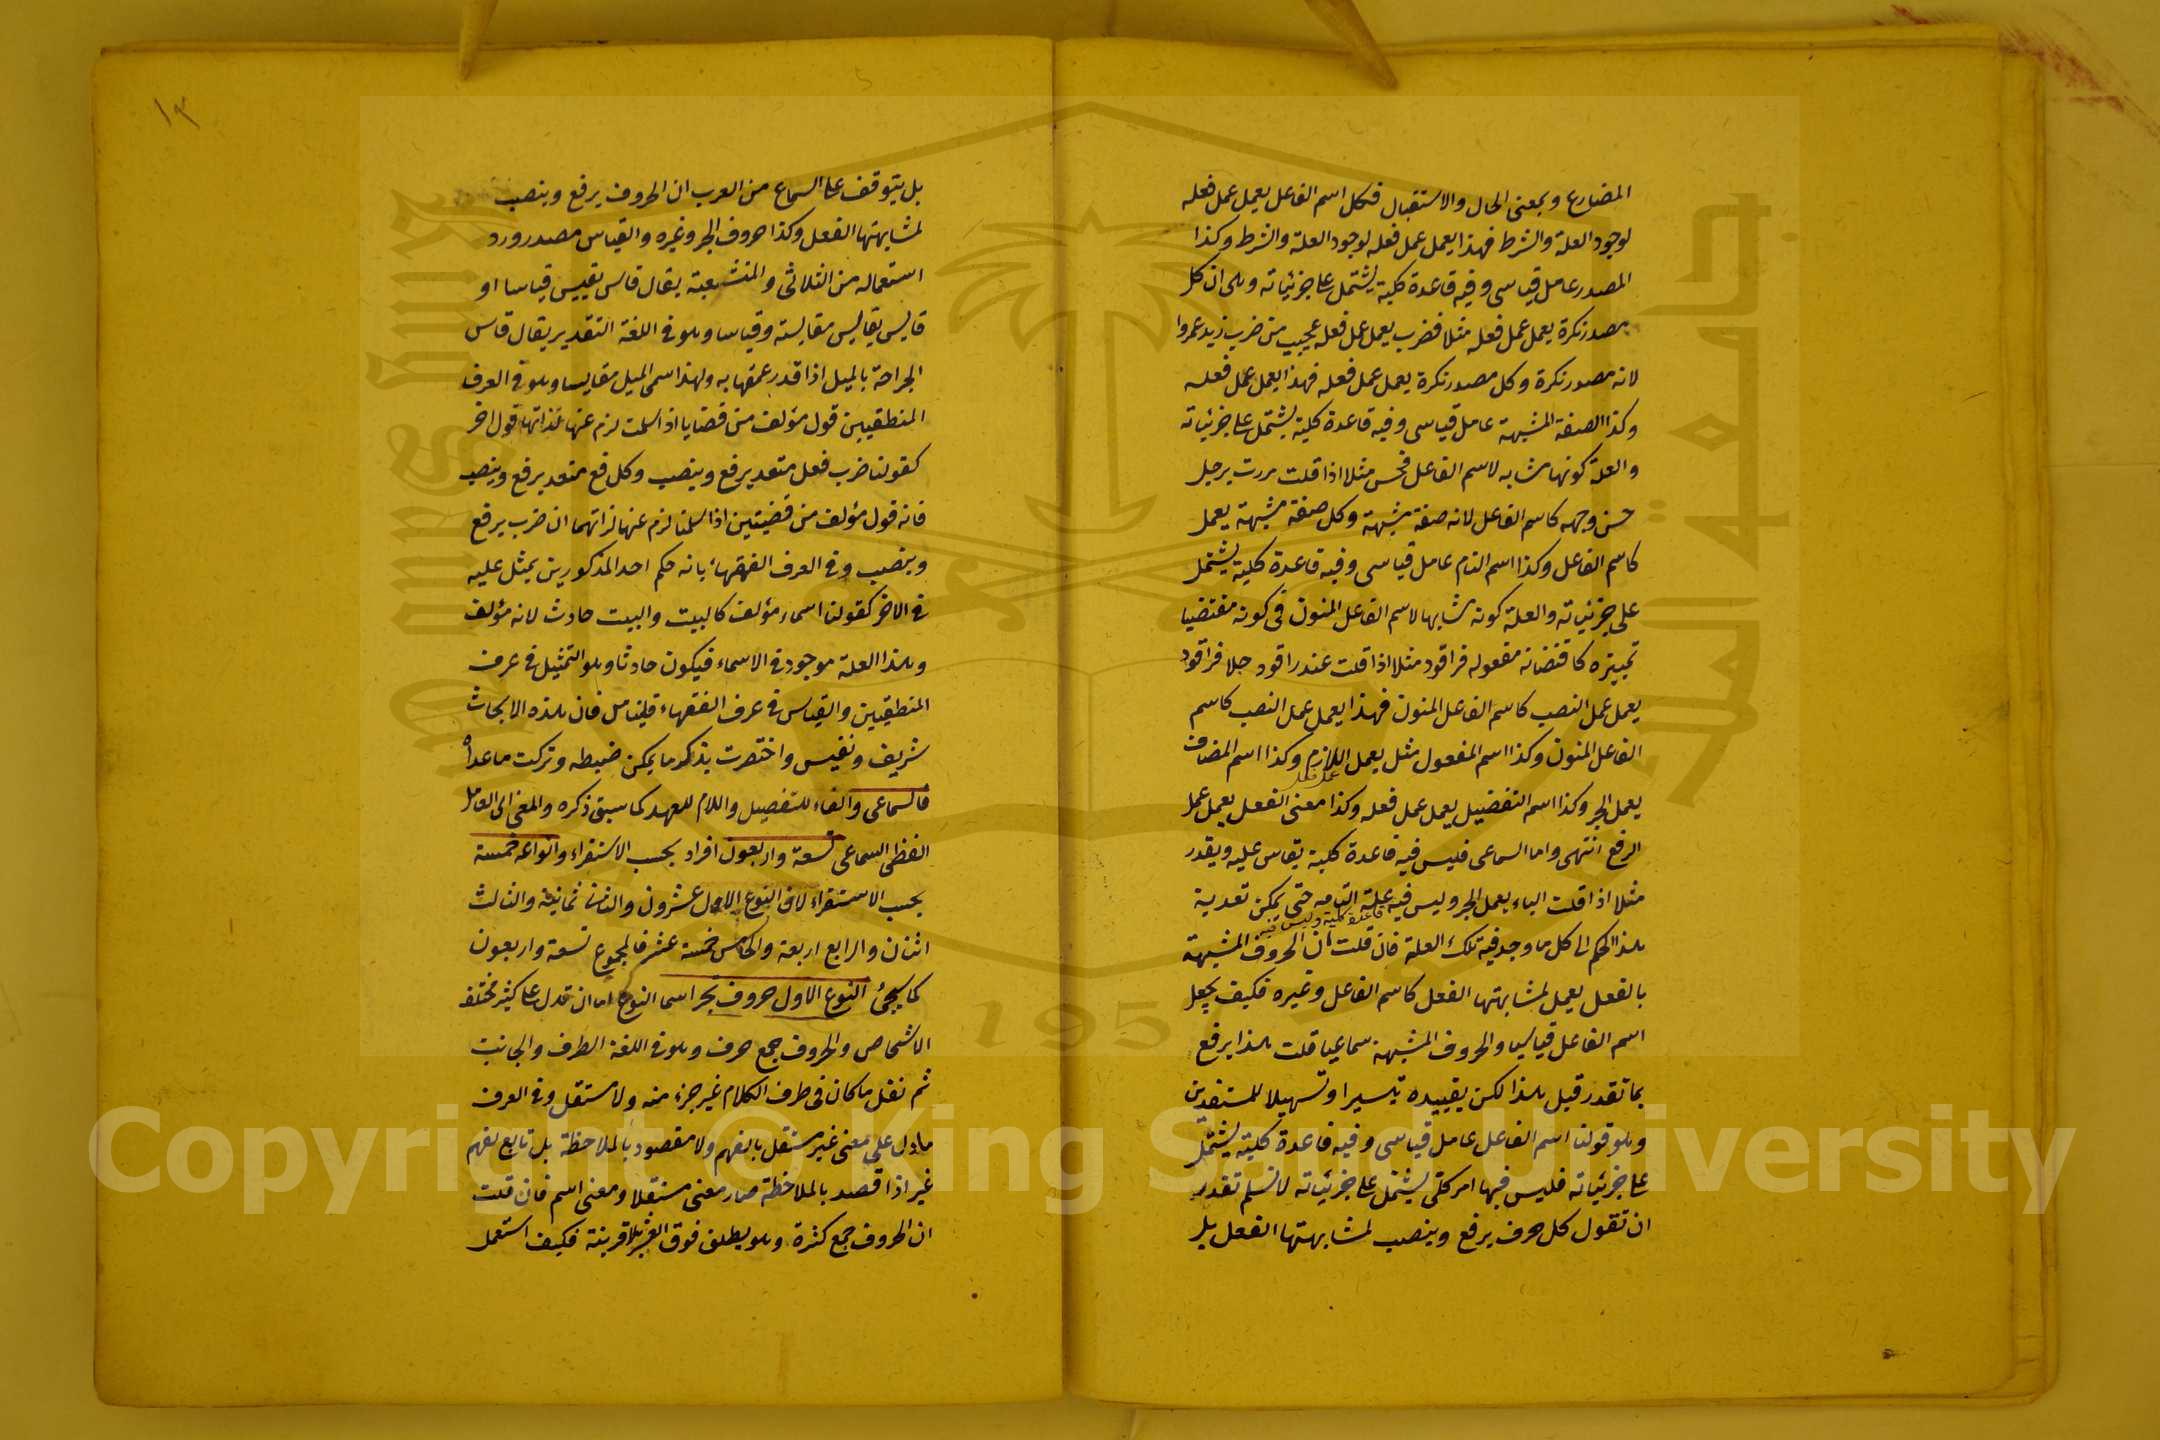 المضارع وبمعنى الحال والاستقبال فكل اسم الفاعل يعمل عمل فعله
لوجود العلة والشرط فهذا يعمل عمل فعله لوجود العلة والشرط وكذا
المصدر عامل قياسى وفيه قاعدة كلية يشتمل على جزئياته وهى ان كل
مصدر نكرة يعمل عمل فعله مثلا فضرب يعمل عمل فعله عجبت من ضرب زيد عمروا
لانه مصدر نكرة وكل مصدر نكرة يعمل عمل فعله فهذا يعمل عمل فعله
وكذا الصفة المشبهة عامل قياسى وفيه قاعدة كلية يشتمل على جزئياته
والعلة كونها مشابه لاسم الفاعل فحسن مثلا اذا قلت مررت برجل
حسن وجهه كاسم الفاعل لانه صفة مشبهة وكل صفة مشبهة يعمل
كاسم الفاعل وكذا اسم التام عامل قياسى وفيه قاعدة كلية يشتمل
على جزئياته والعلة كونه مشابها لاسم الفاعل المنون فى كونه مقتضيا
تمييزه كاقتضائه مفعوله فراقود مثلا اذا قلت عندى راقود خلا فراقود
يعمل عمل النصب كاسم الفاعل المنون فهذا يعمل عمل النصب كاسم
الفاعل المنون وكذا اسم المفعول مثل يعمل اللازم وكذا اسم المضاف
عمل فعله
يعمل الجر وكذا اسم التفضيل يعمل عمل فعله وكذا معنى الفعل يعمل عمل
الرفع انتهى واما السماعى فليس فيه قاعدة كلية يقاس عليه ويقدر
مثلا اذا قلت الباء يعمل الجر وليس فيه علة التامه حتى يمكن تعدية
قاعدة كلية وليس فيه
هذا الحكم الى كل ما وجد فيه تلك العلة فان قلت ان الحروف المشبهة
بالفعل يعمل لمشابهتها الفعل كاسم الفاعل وغيره فكيف يجعل
اسم الفاعل قياسيا والحروف المشبهة سماعيا قلت هذا يرفع
بما تقدر قبل هذا لكن يقيده تيسيرا وتسهيلا للمستفدين
وهو قولنا اسم الفاعل عامل قياسى وفيه قاعدة كلية يشتمل
على جزئياته فليس فيها امر كلى يشتمل على جزئياته لا نسلم تقدير
ان تقول كل حرف يرفع وينصب لمشابهتها الفعل بل
بل يتوقف على السماع من العرب ان الحروف يرفع وينصب
لمشابهتها الفعل وكذا حروف الجر وغيره والقياس مصدر ورد
استعماله من الثلاثى والمنشعبة يقال قاس يقيس قياسا او
قايس يقايس مقايسة وقياسا وهو فى اللغة التقدير يقال قاس
الجراحة بالميل اذا قدر عمقها به ولهذا سمى الميل مقايسا وهو فى العرف
المنطقيين قول مؤلف من قضايا اذا سلمت لزم عنها لذاتها قول اخر
كقولنا ضرب فعل متعد يرفع وينصب وكل فع متعد يرفع وينصب
فانه قول مؤلف من قضيتين اذا سلمتا لزم عنها لذاتهما ان ضرب يرفع
وينصب وفى العرف الفقهاء بانه حكم احد المذكورين بمثل عليه
فى الاخر كقولنا اسماء مؤلف كالبيت والبيت حادث لانه مؤلف
وهذا العلة موجود فى الاسماء فيكون حادثا وهو التمثيل فى عرف
المنطقيين والقياس فى عرف الفقهاء فليتامل فان هذه الابحاث
شريف ونفيس واختصرت بذكر ما يمكن ضبطه وتركت ما عداه
فالسماعى والفاء للتفصيل واللام للعهد كما سبق ذكره والمعنى اى العامل
الفظى السماعى تسعة واربعون افراد بحسب الاستقراء وانواعه خمسة
بحسب الاستقراء لان النوع الاول عشرون والثانى ثمانية والثالث
اثنان والرابع اربعة والخامس خمسة عشر فالمجموع تسعة واربعون
كما سيجئ النوع الاول حروف تجر اسما النوع اما ان تدل على كثير مختلف
الاشخاص والحروف جمع حرف وهو فى اللغة الطرف والجانب
ثم نقل ما كان فى طرف الكلام غير جزء منه ولا مستقل وفى العرف
ما دل على معنى غير مستقل بالفهم ولا مقصود بالملاحظة بل تابع لفهم
غير اذا قصد بالملاحظة صار معنى مستقلا ومعنى اسم فان قلت
ان الحروف جمع كثرة وهو يطلق فوق العشر بلا قرينة فكيف استعمل
Copyright © King Saud University
جامعة الملك سعود
King Saud University
1957